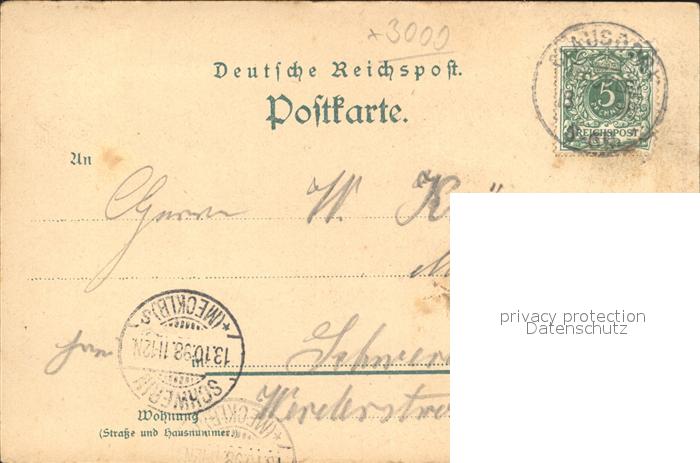 *3000
Deutsche Reichspost.
Postkarte.
5
REICHSPOST
An
Herrn W. K
privacy protection
Datenschutz
SCHWERIN *(MECKLB)*
13.10.98.11-12N.
in Schwerin
Wohnung
(Straße und Hausnummer)
Werderstr